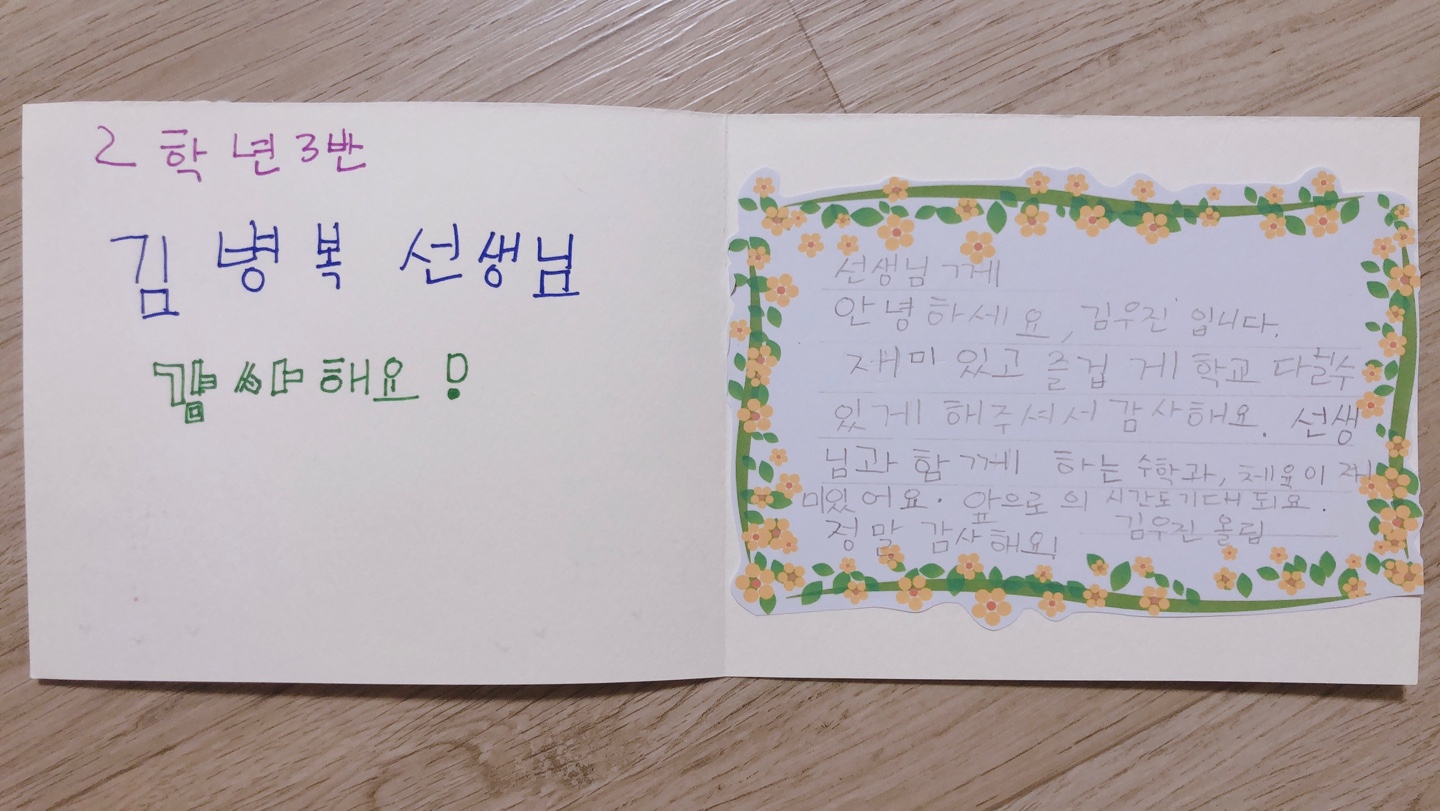 2학년 3반
김병복 선생님
감싸해요!
선생님께
안녕하세요, 김우진 입니다.
재미있고 즐겁게 학교 다닐수
있게 해주셔서 감사해요. 선생
님과 함께 하는 수학과, 체육이 재
미있어요. 앞으로의 시간도기대되요.
정말 감사해요! 김우진 올림